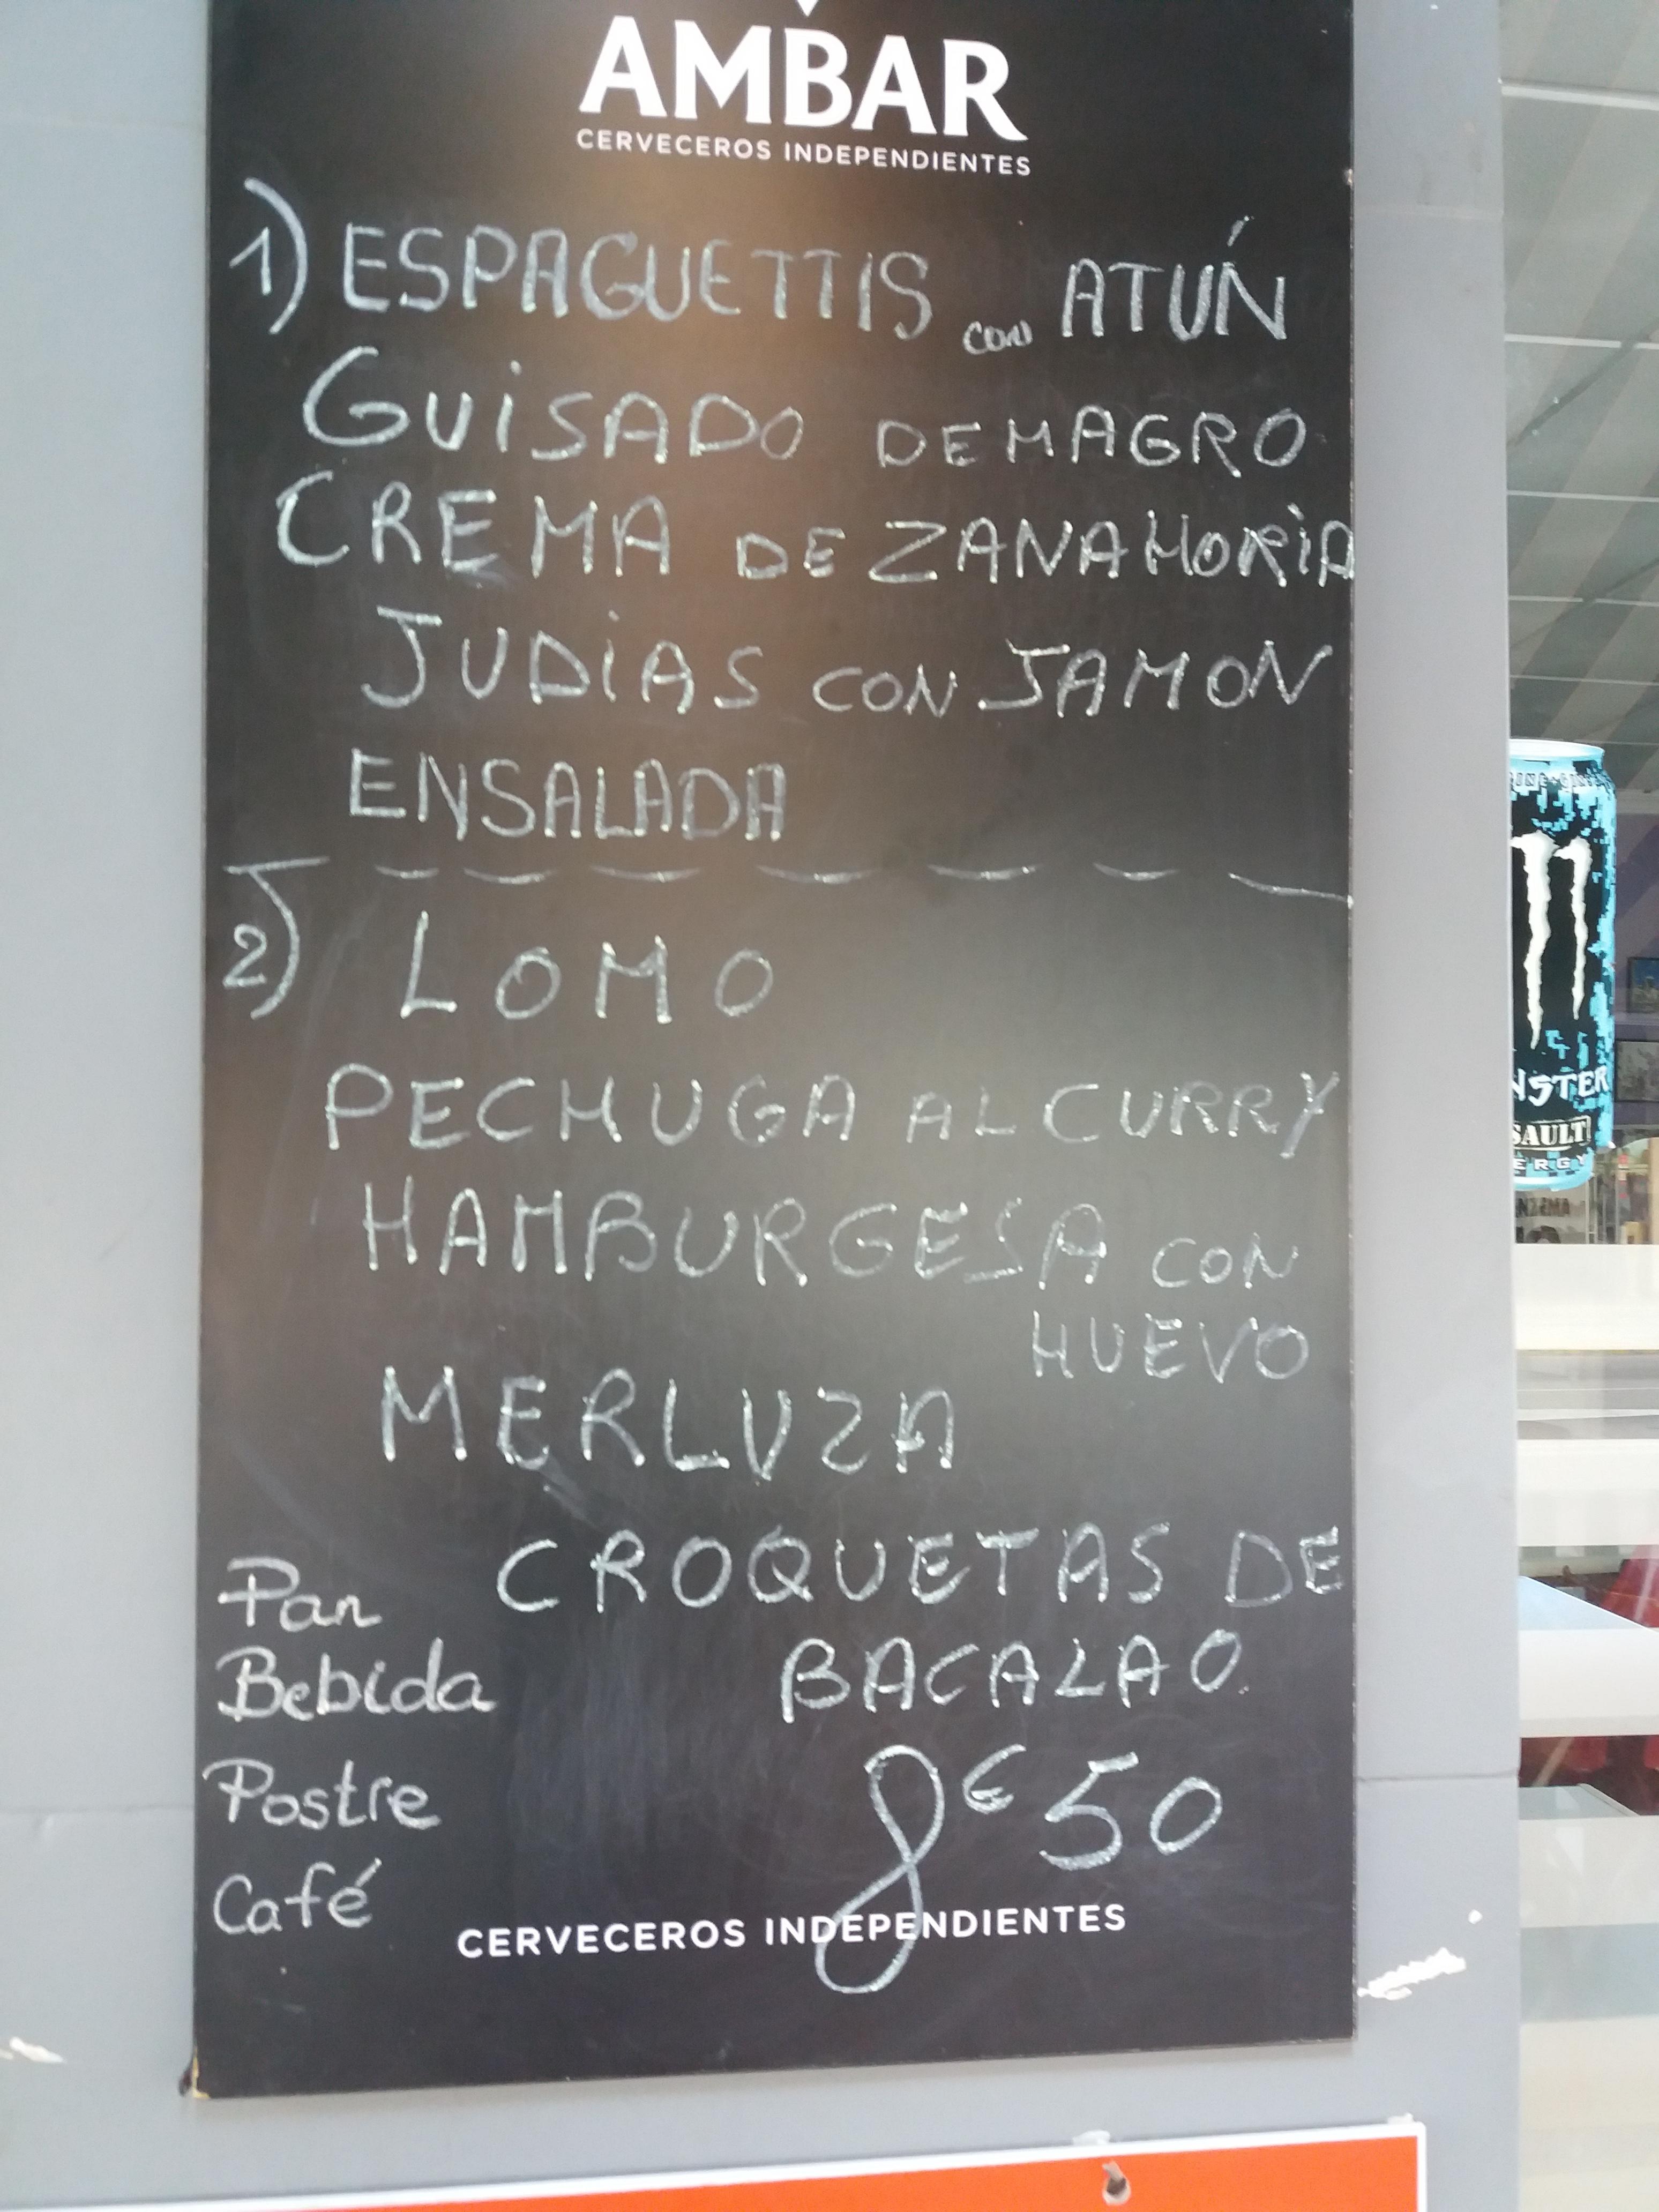 AMBAR
CERVECEROS INDEPENDIENTES
1) ESPAGUETTIS con ATÚN
GUiSADO DE MAGRO
CREMA DE ZANAHORiA
JUDiAS CON JAMON
ENSALADA
2) LOMO
PECHUGA AL CURRY
HAMBURGESA CON
HUEVO
MERLUZA
CROQUETAS DE
BACALAO
Pan
Bebida
Postre
Café
8€50
CERVECEROS INDEPENDIENTES
NSTER
SAULT
ERGY